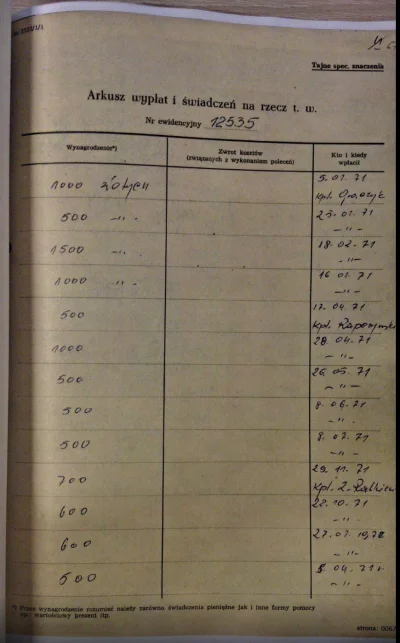 Tajne spec. znaczenia
Arkusz wypłat i świadczeń na rzecz t. w.
Nr ewidencyjny 12535
Wynagrodzenie*)
Zwrot kosztów
(związanych z wykonaniem poleceń)
Kto i kiedy
wpłacił
1000 złotych
5. 01. 71
Kpt.
500 -"-
1500 -"-
18. 02. 71
-"-
1000 -"-
-"-
500
17. 04. 71
Kpt.
1000
28. 04. 71
-"-
500
26. 05. 71
-"-
500
8. 06. 71
-"-
500
8. 07. 71
-"-
700
29. 11. 71
Kpt. Z.
600
22. 10. 71
-"-
600
-"-
500
-"-
*) Przez wynagrodzenie rozumieć należy zarówno świadczenia pieniężne jak i inne formy pomocy
np.: wartościowy prezent itp.